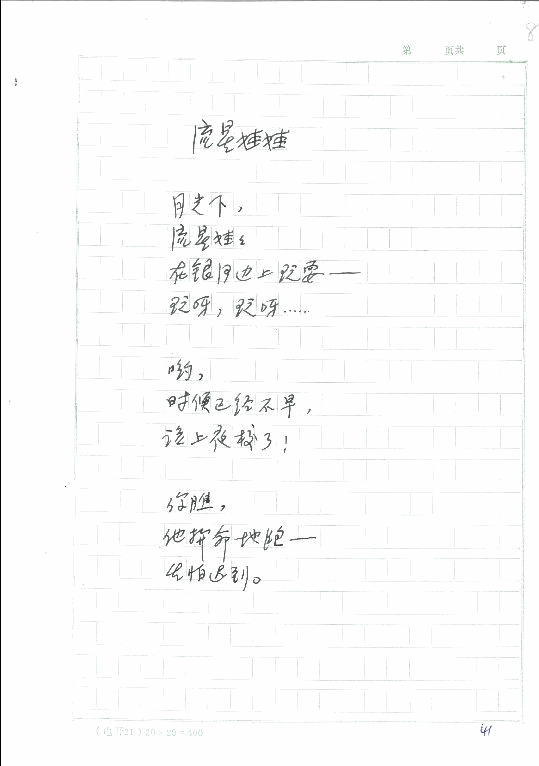 第 页共 页
流星娃娃
月光下，
流星娃娃
在银河边上玩耍——
玩呀，玩呀……
哟，
时候已经不早，
该上夜校了！
你瞧，
他拼命地跑——
生怕迟到。
20×20=400
41